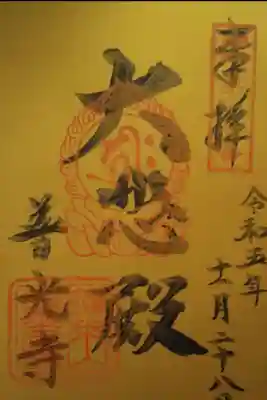 奉拝
令和五年
十一月二十八日
大悲殿
普光寺